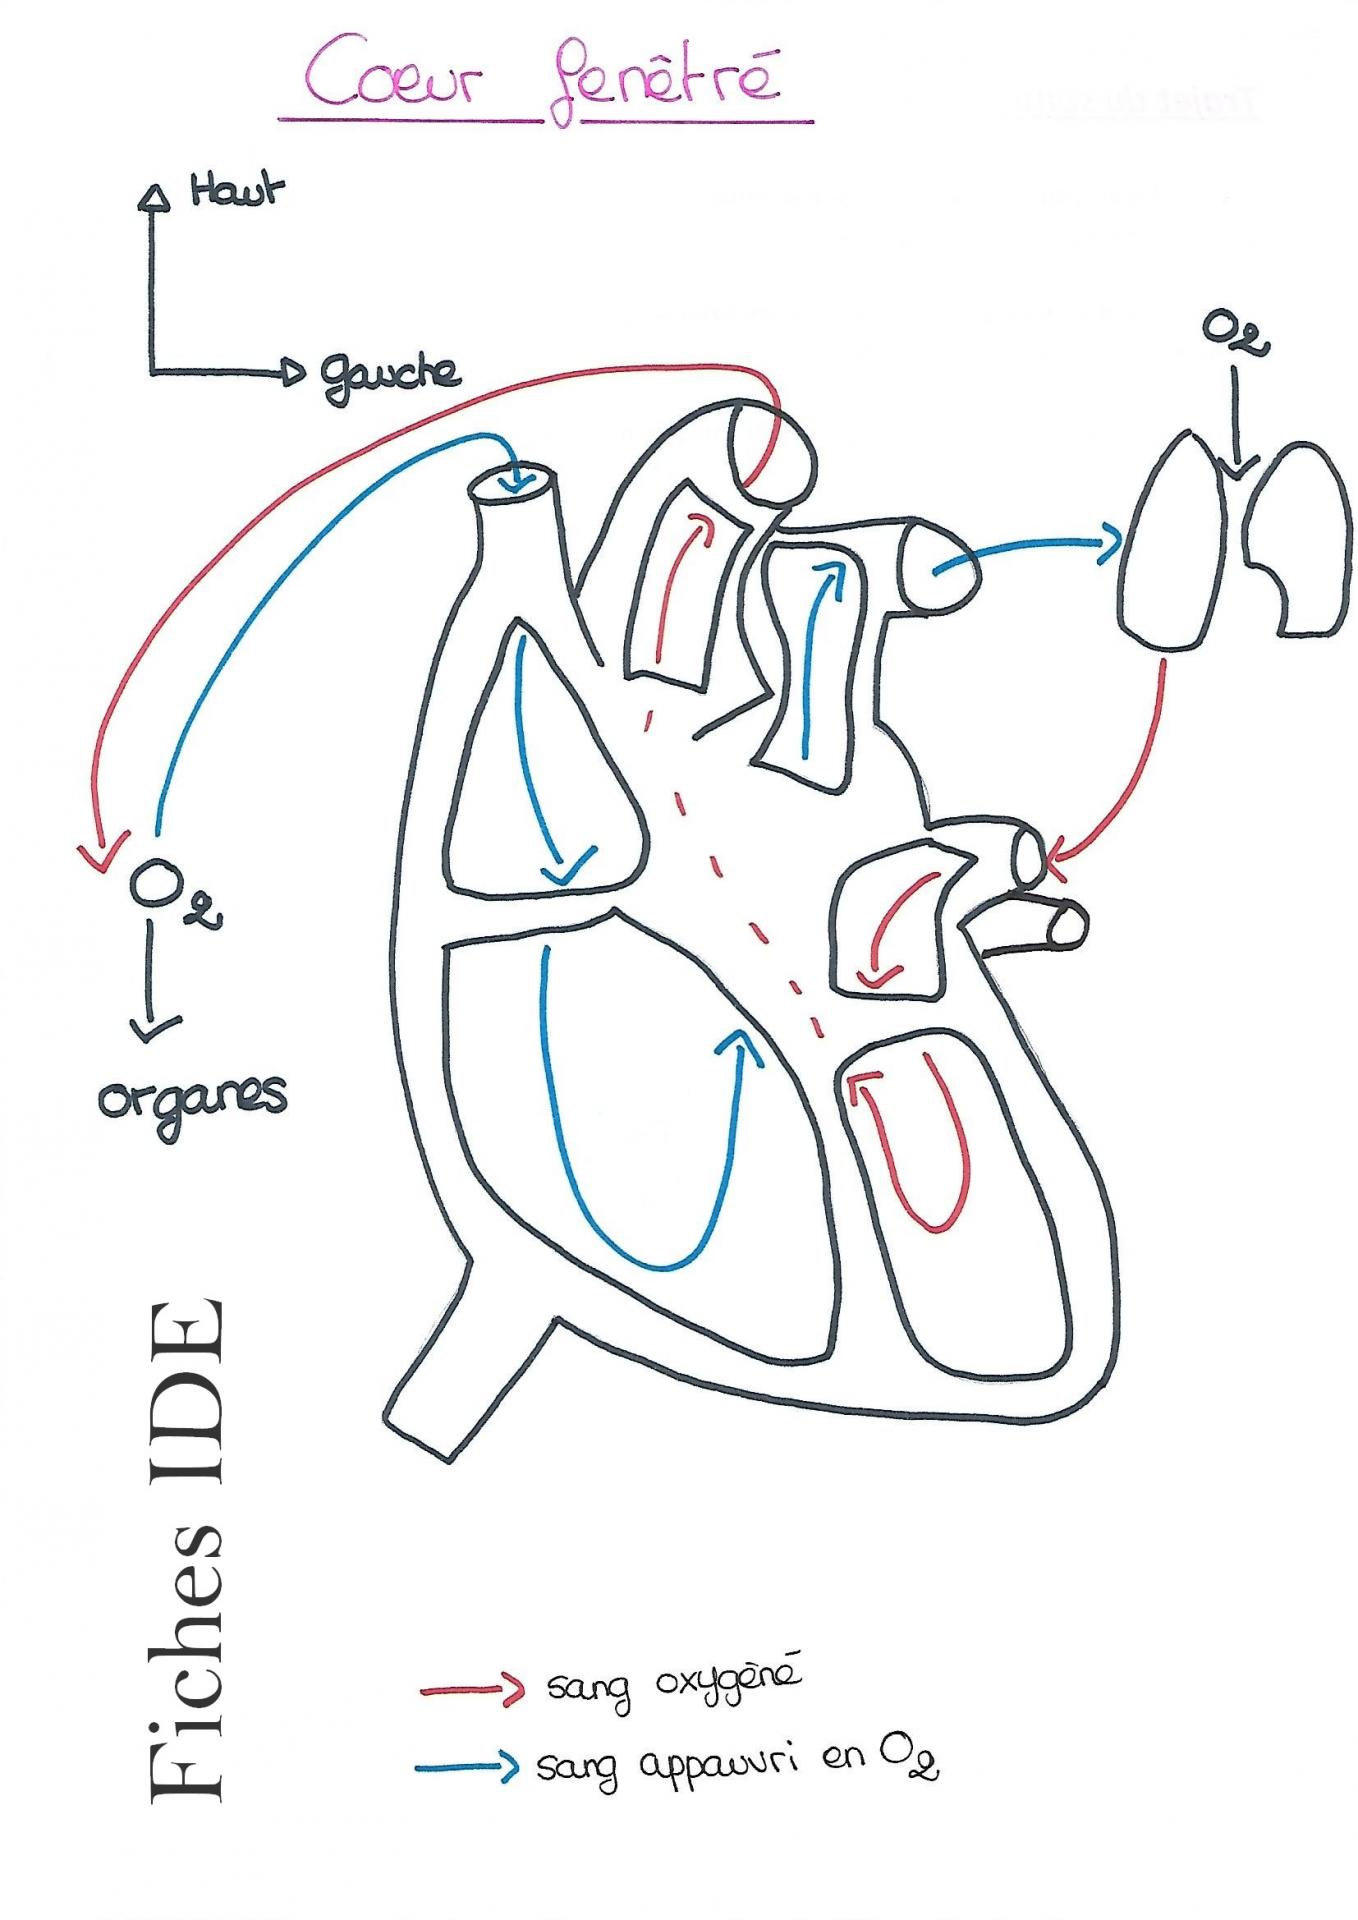 Coeur fenêtré
Haut
gauche
O2
O2
organes
Fiches IDE
sang oxygéné
sang appauvri en O2